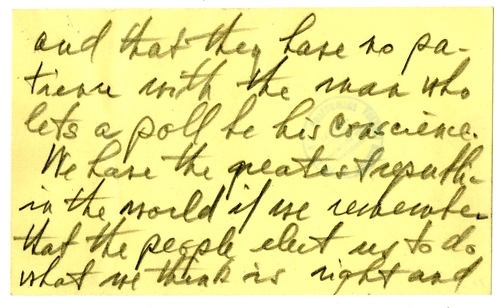 and that they have no pa-
tience with the man who
lets a poll be his conscience.
We have the greatest republic
in the world if we remember
that the people elect us to do
what we think is right and